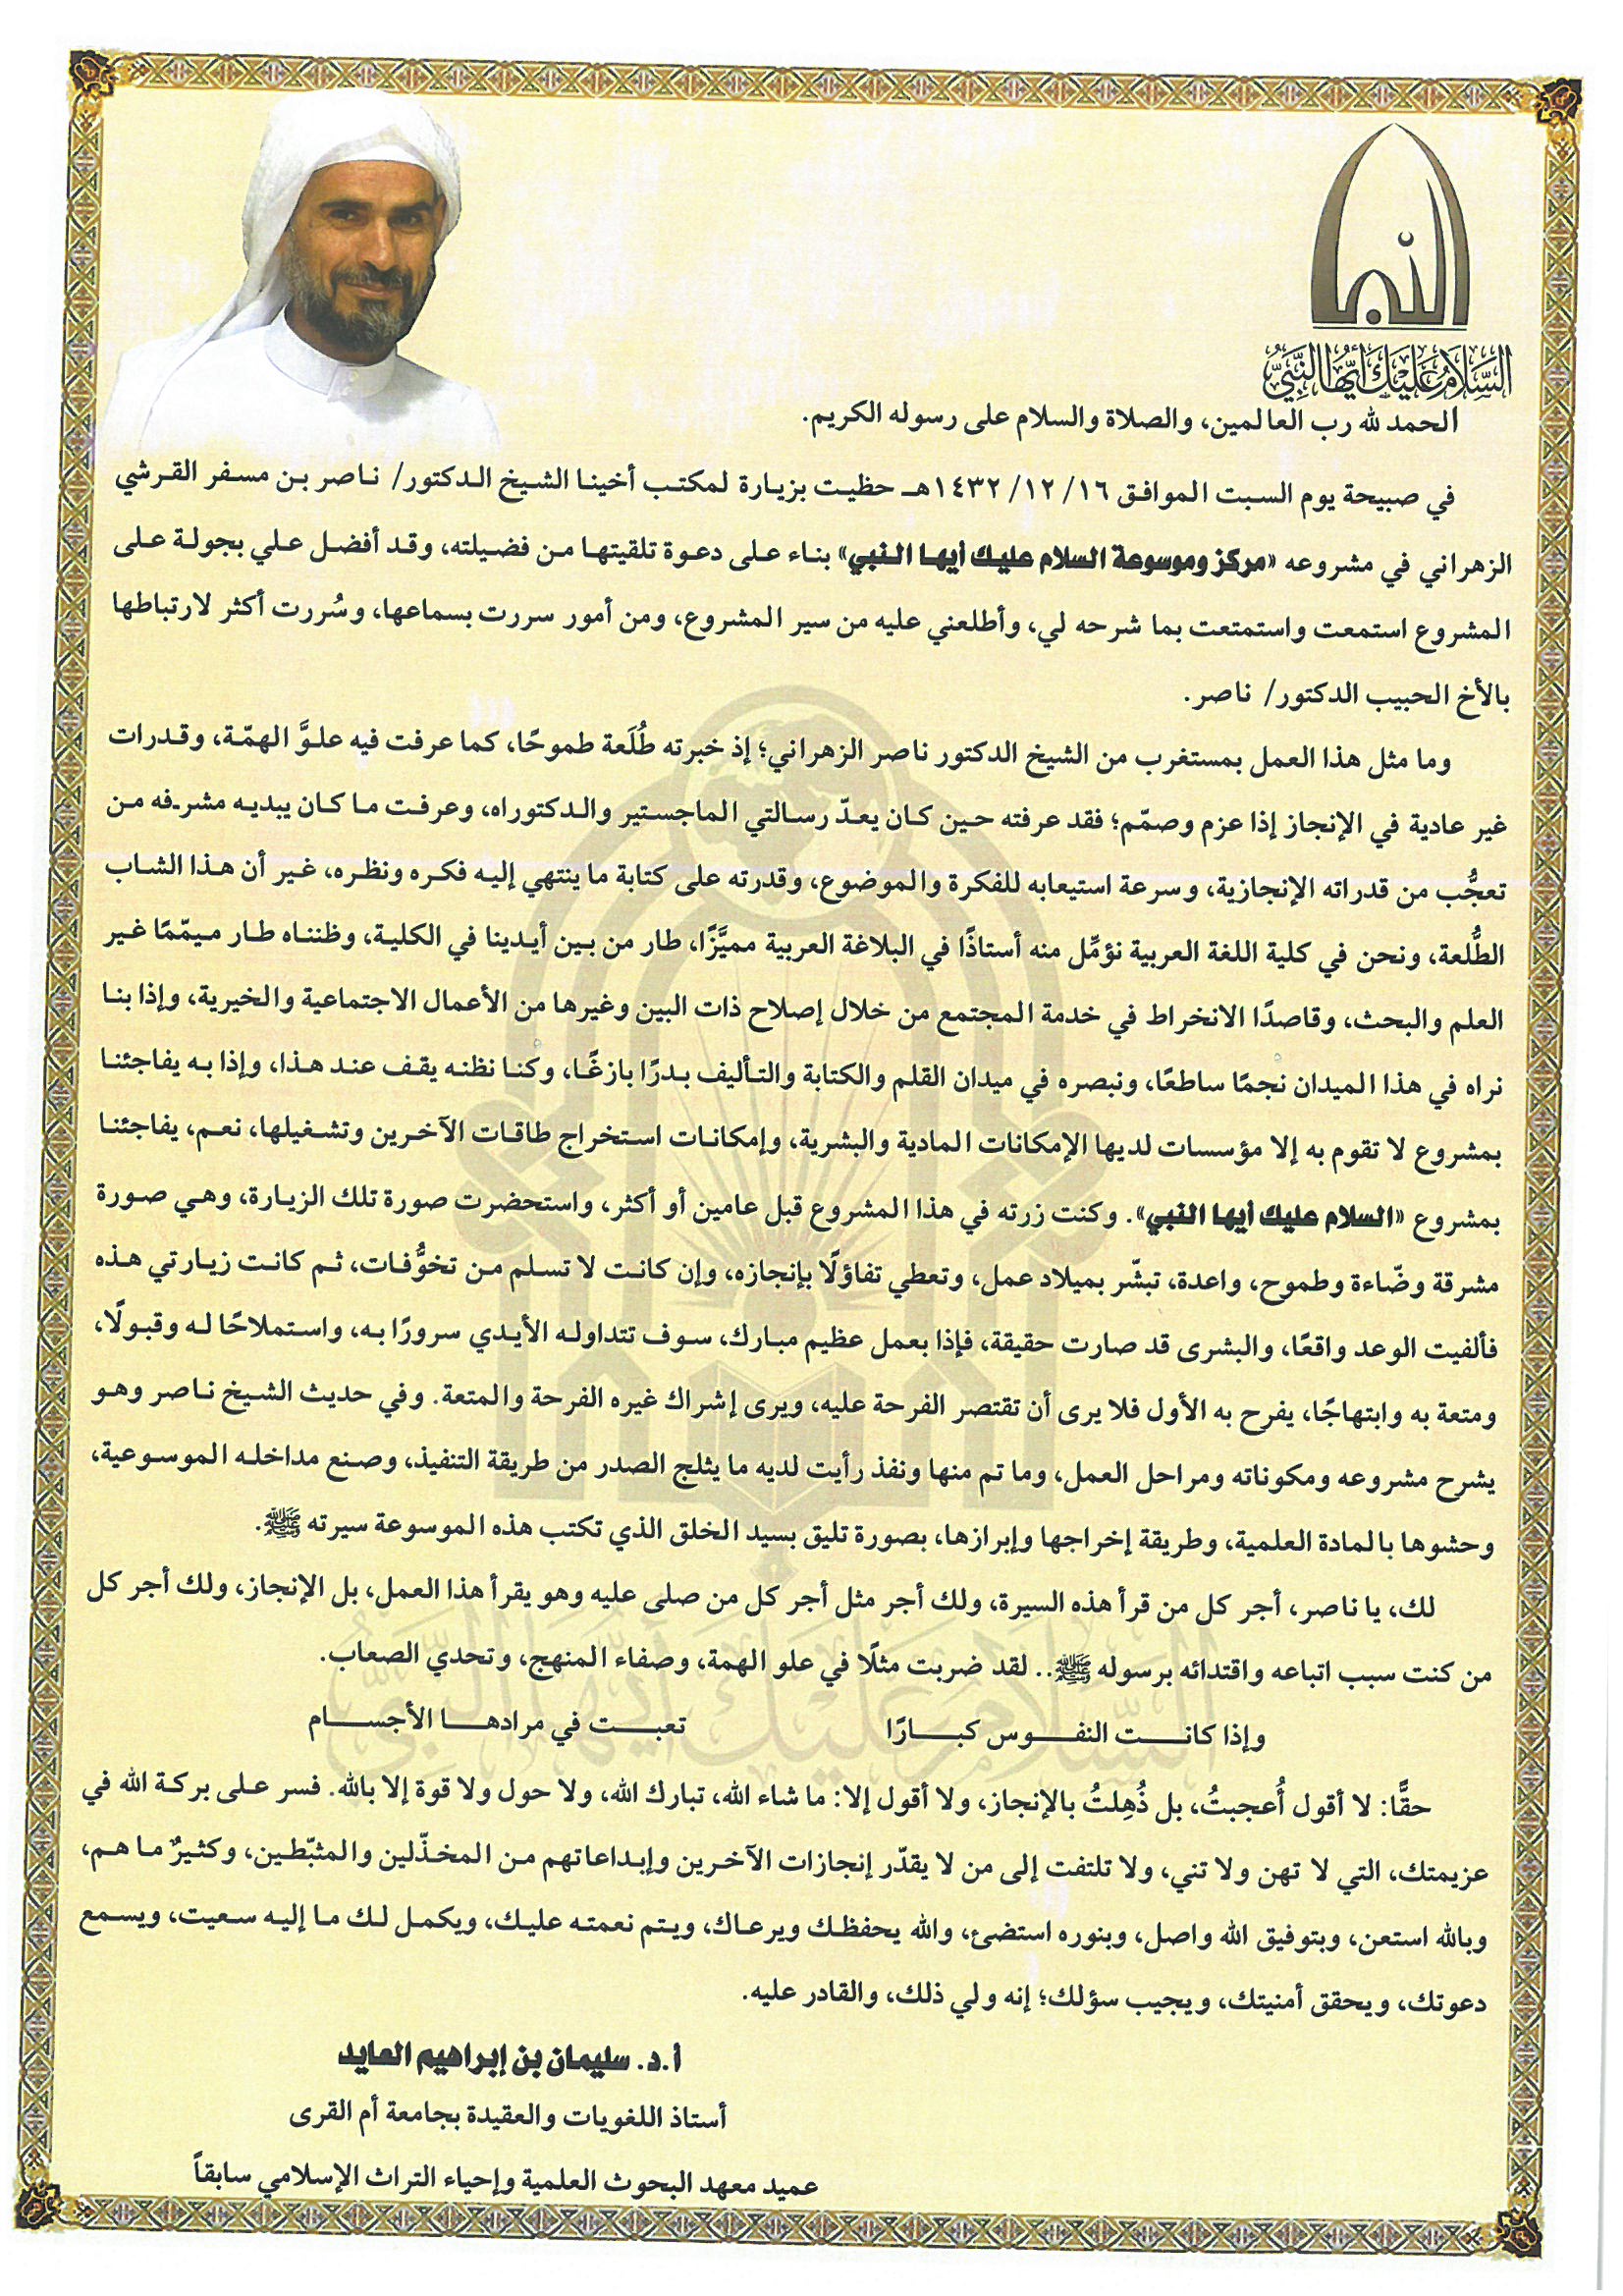 النبي
السَّلَامُ عَلَيْكَ أَيُّهَا النَّبِيُّ
الحمد لله رب العالمين، والصلاة والسلام على رسوله الكريم.
في صبيحة يوم السبت الموافق ١٦/ ١٢/ ١٤٣٢هـ حظيت بزيارة لمكتب أخينا الشيخ الدكتور/ ناصر بن مسفر القرشي
الزهراني في مشروعه «مركز وموسوعة السلام عليك أيها النبي» بناء على دعوة تلقيتها من فضيلته، وقد أفضل علي بجولة على
المشروع استمعت واستمتعت بما شرحه لي، وأطلعني عليه من سير المشروع، ومن أمور سررت بسماعها، وسُررت أكثر لارتباطها
بالأخ الحبيب الدكتور/ ناصر.
وما مثل هذا العمل بمستغرب من الشيخ الدكتور ناصر الزهراني؛ إذ خبرته طُلَعة طموحًا، كما عرفت فيه علوَّ الهمّة، وقدرات
غير عادية في الإنجاز إذا عزم وصمّم؛ فقد عرفته حين كان يعدّ رسالتي الماجستير والدكتوراه، وعرفت ما كان يبديه مشرفه من
تعجُّب من قدراته الإنجازية، وسرعة استيعابه للفكرة والموضوع، وقدرته على كتابة ما ينتهي إليه فكره ونظره، غير أن هذا الشاب
الطُّلعة، ونحن في كلية اللغة العربية نؤمِّل منه أستاذًا في البلاغة العربية مميَّزًا، طار من بين أيدينا في الكلية، وظنناه طار ميمّمًا غير
العلم والبحث، وقاصدًا الانخراط في خدمة المجتمع من خلال إصلاح ذات البين وغيرها من الأعمال الاجتماعية والخيرية، وإذا بنا
نراه في هذا الميدان نجمًا ساطعًا، ونبصره في ميدان القلم والكتابة والتأليف بدرًا بازغًا، وكنا نظنه يقف عند هذا، وإذا به يفاجئنا
بمشروع لا تقوم به إلا مؤسسات لديها الإمكانات المادية والبشرية، وإمكانات استخراج طاقات الآخرين وتشغيلها، نعم، يفاجئنا
بمشروع «السلام عليك أيها النبي». وكنت زرته في هذا المشروع قبل عامين أو أكثر، واستحضرت صورة تلك الزيارة، وهي صورة
مشرقة وضّاءة وطموح، واعدة، تبشّر بميلاد عمل، وتعطي تفاؤلًا بإنجازه، وإن كانت لا تسلم من تخوُّفات، ثم كانت زيارتي هذه
فألفيت الوعد واقعًا، والبشرى قد صارت حقيقة، فإذا بعمل عظيم مبارك، سوف تتداوله الأيدي سرورًا به، واستملاحًا له وقبولًا،
ومتعة به وابتهاجًا، يفرح به الأول فلا يرى أن تقتصر الفرحة عليه، ويرى إشراك غيره الفرحة والمتعة. وفي حديث الشيخ ناصر وهو
يشرح مشروعه ومكوناته ومراحل العمل، وما تم منها ونفذ رأيت لديه ما يثلج الصدر من طريقة التنفيذ، وصنع مداخله الموسوعية،
وحشوها بالمادة العلمية، وطريقة إخراجها وإبرازها، بصورة تليق بسيد الخلق الذي تكتب هذه الموسوعة سيرته ﷺ.
لك، يا ناصر، أجر كل من قرأ هذه السيرة، ولك أجر مثل أجر كل من صلى عليه وهو يقرأ هذا العمل، بل الإنجاز، ولك أجر كل
من كنت سبب اتباعه واقتدائه برسوله ﷺ.. لقد ضربت مثلًا في علو الهمة، وصفاء المنهج، وتحدي الصعاب.
وإذا كانت النفوس كبارًا تعبت في مرادها الأجسام
حقًّا: لا أقول أُعجبتُ، بل ذُهِلتُ بالإنجاز، ولا أقول إلا: ما شاء الله، تبارك الله، ولا حول ولا قوة إلا بالله. فسر على بركة الله في
عزيمتك، التي لا تهن ولا تني، ولا تلتفت إلى من لا يقدّر إنجازات الآخرين وإبداعاتهم من المخذّلين والمثبّطين، وكثيرٌ ما هم،
وبالله استعن، وبتوفيق الله واصل، وبنوره استضئ، والله يحفظك ويرعاك، ويتم نعمته عليك، ويكمل لك ما إليه سعيت، ويسمع
دعوتك، ويحقق أمنيتك، ويجيب سؤلك؛ إنه ولي ذلك، والقادر عليه.
أ.د. سليمان بن إبراهيم العايد
أستاذ اللغويات والعقيدة بجامعة أم القرى
عميد معهد البحوث العلمية وإحياء التراث الإسلامي سابقاً